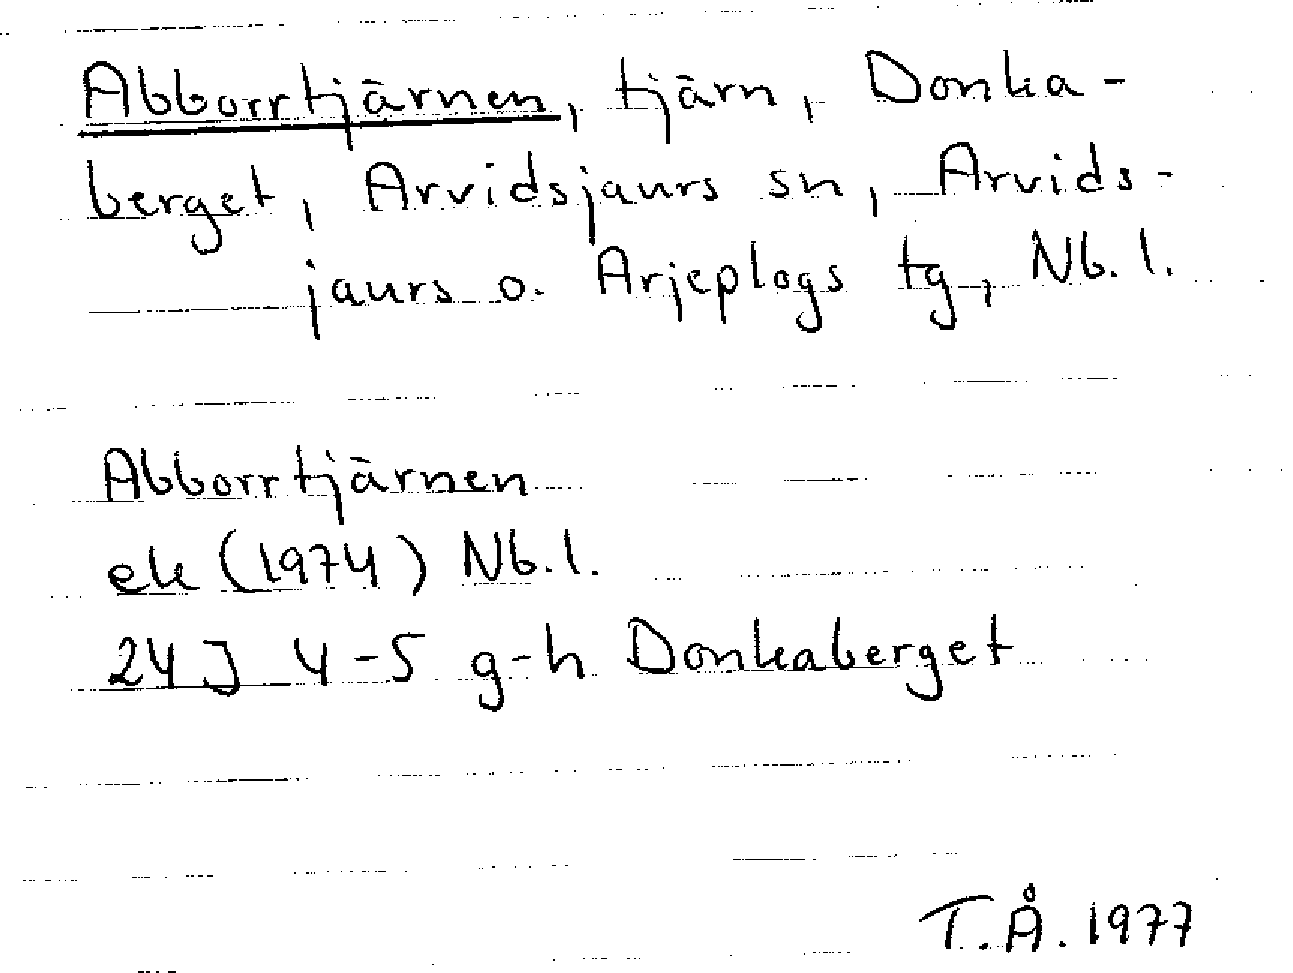 Abborrtjärnen, tjärn, Donka-
berget, Arvidsjaurs sn, Arvids-
jaurs o. Arjeplogs tg, Nb. l.
Abborrtjärnen
ek (1974) Nb. l.
24J 4-5 g-h Donkaberget
T.Å. 1977